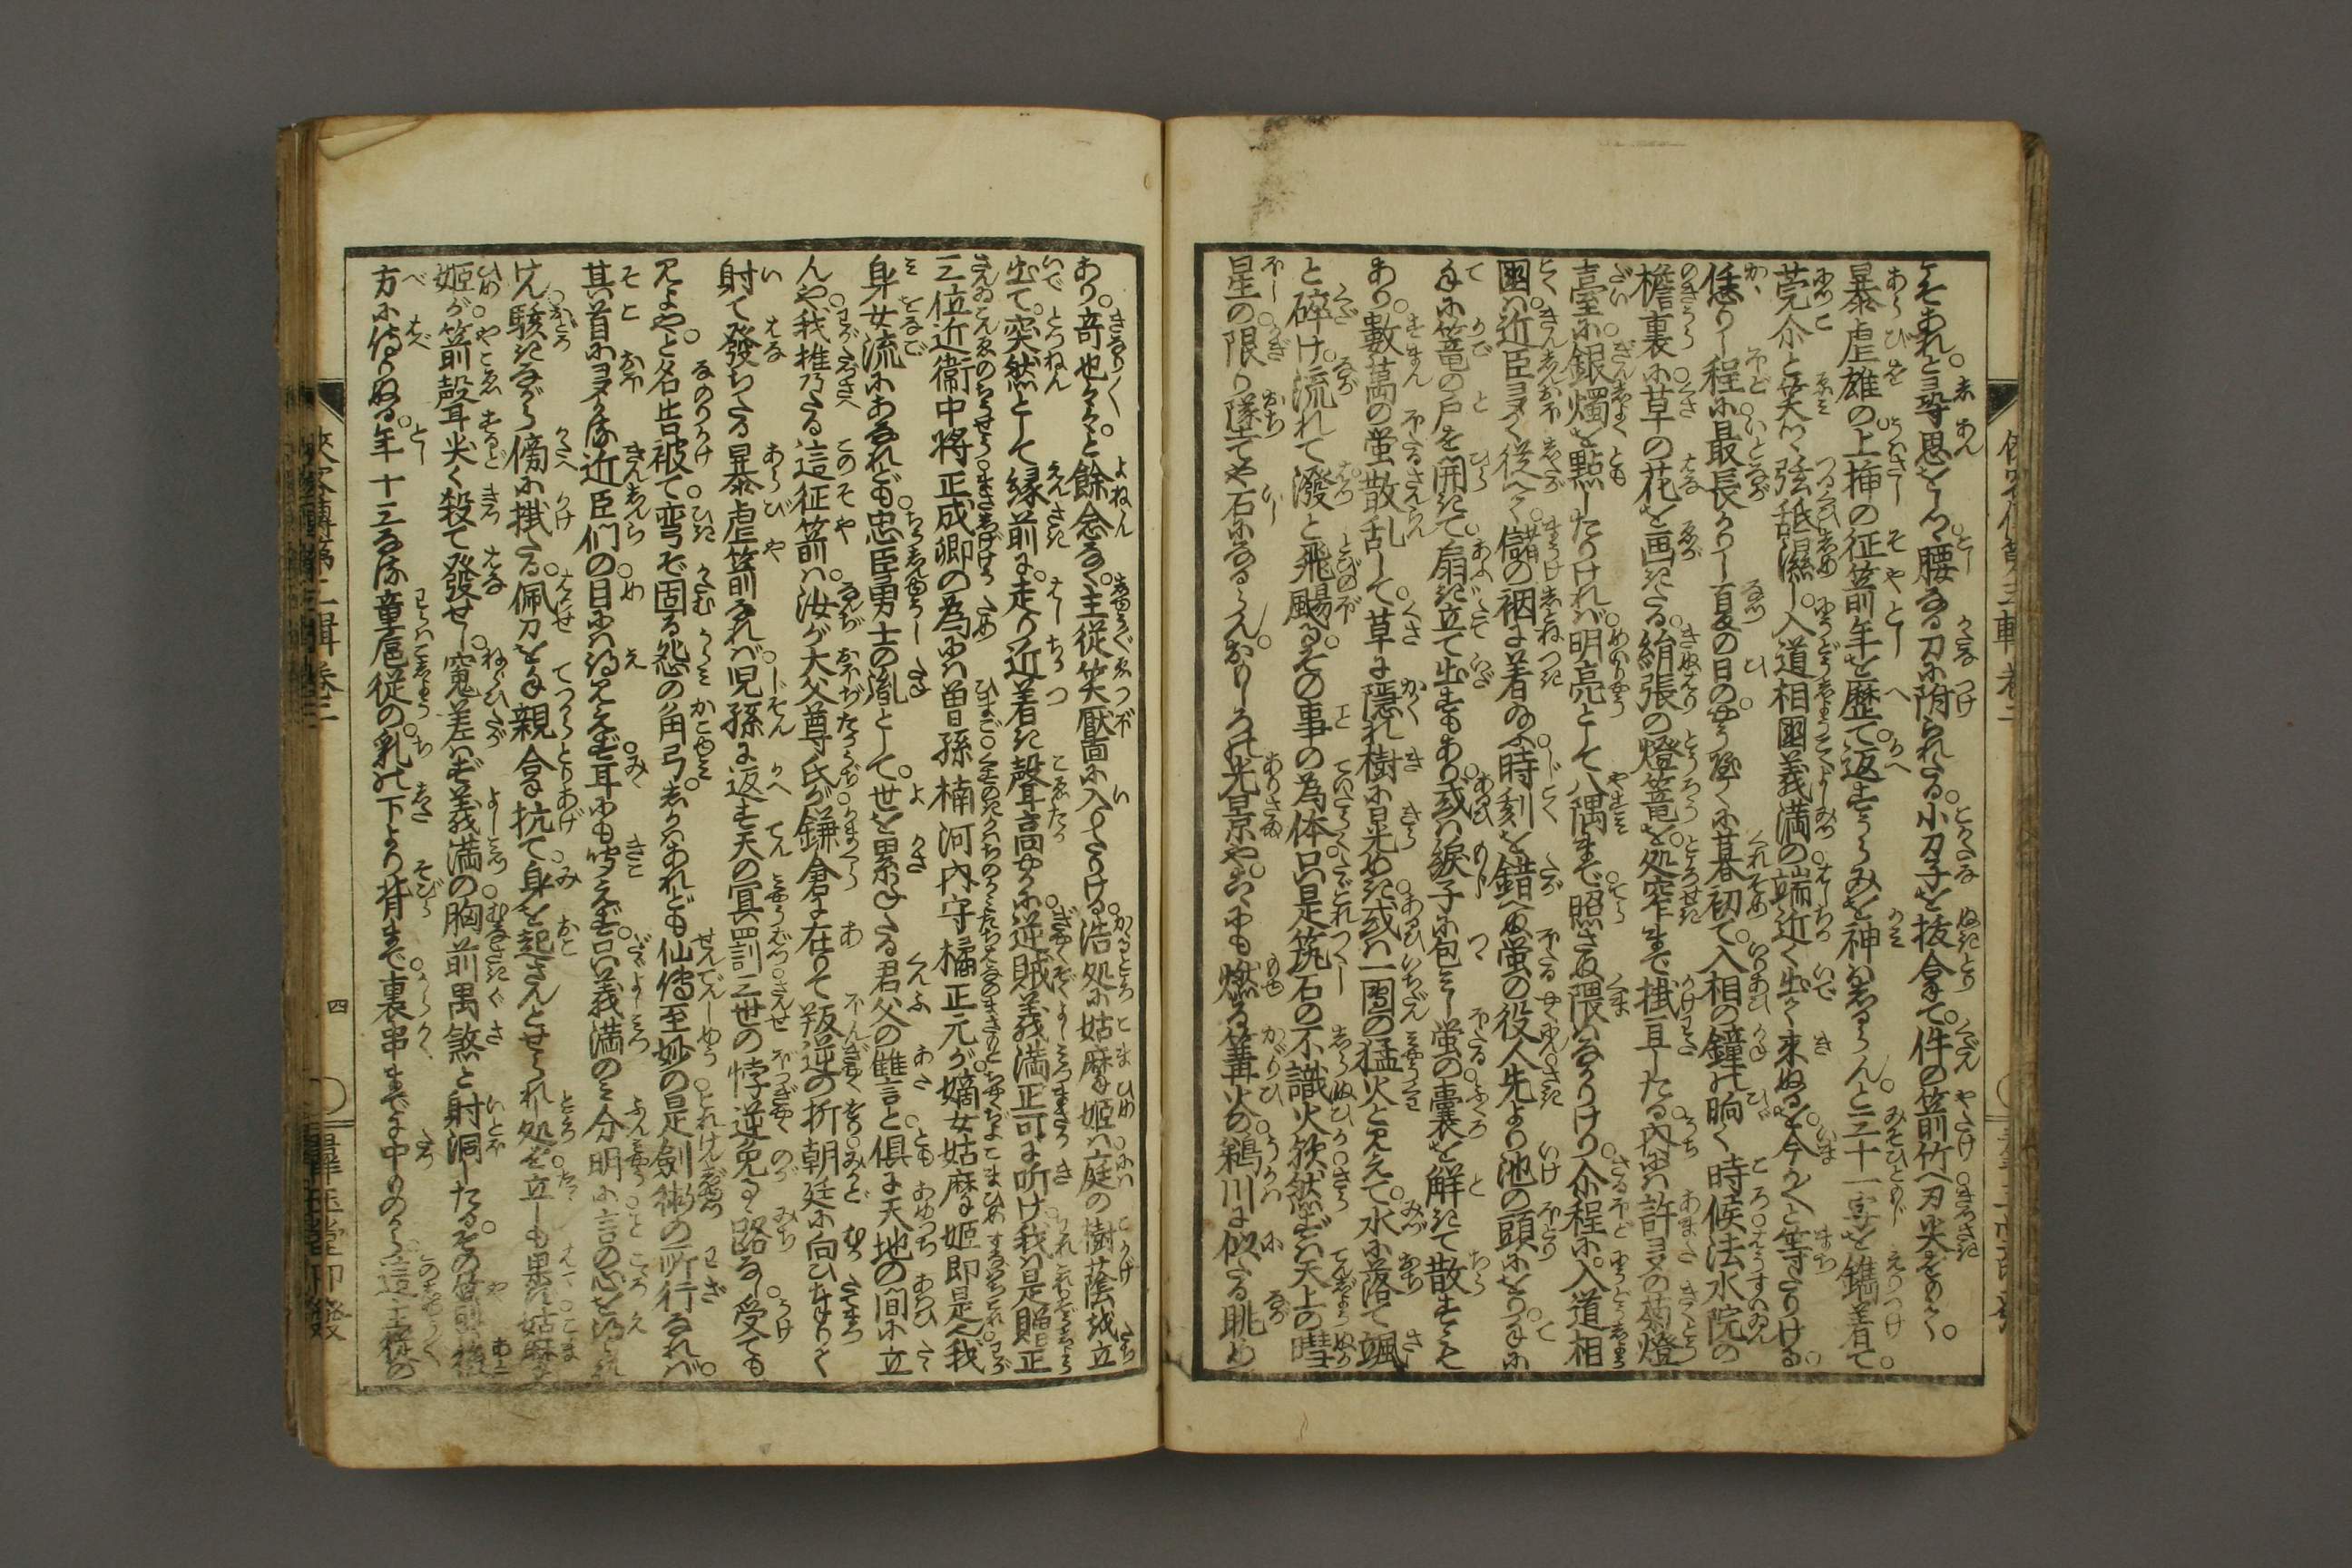 そあれと尋思をしつ。腰なる刀に附られたる。小刀子を抜合て。件の箭竹へ刃尖をもて。
暴虐雄の上挿の征箭年を歴て。返すうらみを神はしるらん。と三十一字を鐫着て。
莞尓と笑つゝ弦舐濕し。入道相國義満の端近く出て来ぬるを。今か〳〵と等たりける。
恁りし程に最長かりし。夏の日のやう蹉くに暮初て。入相の鐘の晌く時候。法水院の
檐裏に草の花を画きたる。絹張の燈篭を。処窄まで掛亘したる。内には許多の菊燈
臺に銀燭を點したりければ。明亮として八隅まで。照さぬ隈はなかりけり。尓程に。入道相
國は近臣夛く従へて。儲の裀に着給ふ。時刻を錯へぬ蛍の役人。先より池の頭にをり。て
手に篭の戸を開きて。扇き立て出すもあり。或は綟子に包みし。蛍の嚢を解きて散すも
あり。數萬の蛍散乱して。草に隠れ樹に晃めき。或は一團の猛火と見えて。水に落て颯
と碎け。流れて潑と飛颺る。その事の為体。只是筑石の不識火歟。然ずは天上の曄
星の限り墜てや石になるらん。おかしかりし光景や。では燃る篝火の。鵜川に似たる眺め
あり。竒也〳〵と。餘念なく。主従笑靨に入にける。浩処に姑摩姫は庭の樹蔭を立
出て。突然として縁前に。走り近着き聲高やかに。逆賊義満正可に听け。我は是贈正
三位近衛中将正成卿の為には曽孫。楠河内守橘正元が。嫡女姑摩姫即是。我
身女流にあなれども。忠臣勇士の胤として。世を累ねたる君父の讐言と。倶に天地の間に立
んや。我推乃たる。這征箭は汝が大父尊氏が。鎌倉に在りて叛逆の折。朝廷に向ひ奉りて
射て發ちたる暴虐箭なれば。児孫に返す天の冥罰。三世の悖逆免るゝ路なし。受ても
見よや。と名告被て弯ぞ固る怨の角弓。しかはあれども仙傳至妙の。是劍術の所行なれば。
其首に夛かる近臣們の。目には得見えず。耳にも聞えず。只義満のみ分明に。言の心を得られ
けん。駭きながら傍に掛たる。佩刀を手親合抗て身を起さんとせられし処を。立しも果ず姑麻
姫が。箭聲尖く殺て發せし。窺差はず義満の胸前愚煞と射洞したる。その箭後
方に傍りぬる。年十三なる童扈従の。乳の下より背まで。裏串までに中りのから。這主従の
四